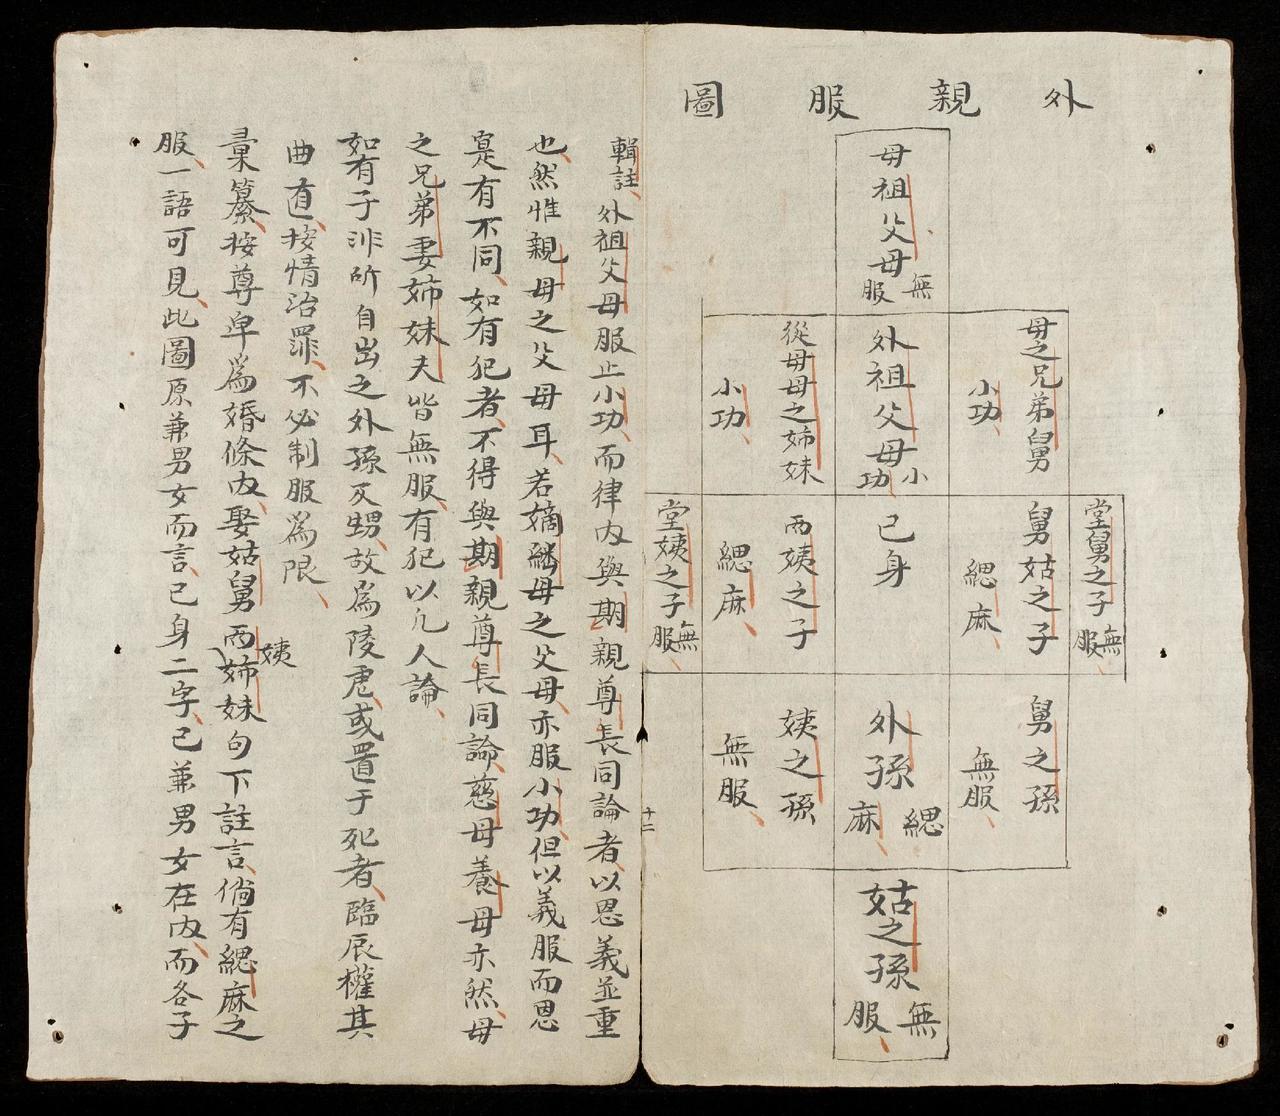 外親服圖
母祖父母無服
母之兄弟舅小功
外祖父母小功
從母母之姊妹小功
堂舅之子無服
舅姑之子緦麻
已身
両姨之子緦麻
堂姨之子無服
舅之孫無服
外孫緦麻
姨之孫無服
姑之孫無服
十二
輯註外祖父母服止小功而律內與期親尊長同論者以恩義並重
也然惟親母之父母耳若嫡繼母之父母亦服小功但以義服而恩
寔有不同如有犯者不得與期親尊長同論慈母養母亦然母
之兄弟妻姉妹夫皆無服有犯以凢人論
如有子非所自出之外孫及甥故為陵虐或置于死者臨辰權其
曲直按情治罪不必制服為限
彙纂按尊卑為婚條內娶姑舅両姨姉妹句下註言倘有緦麻之
服一語可見此圖原兼男女而言已身二字已兼男女在內而各子